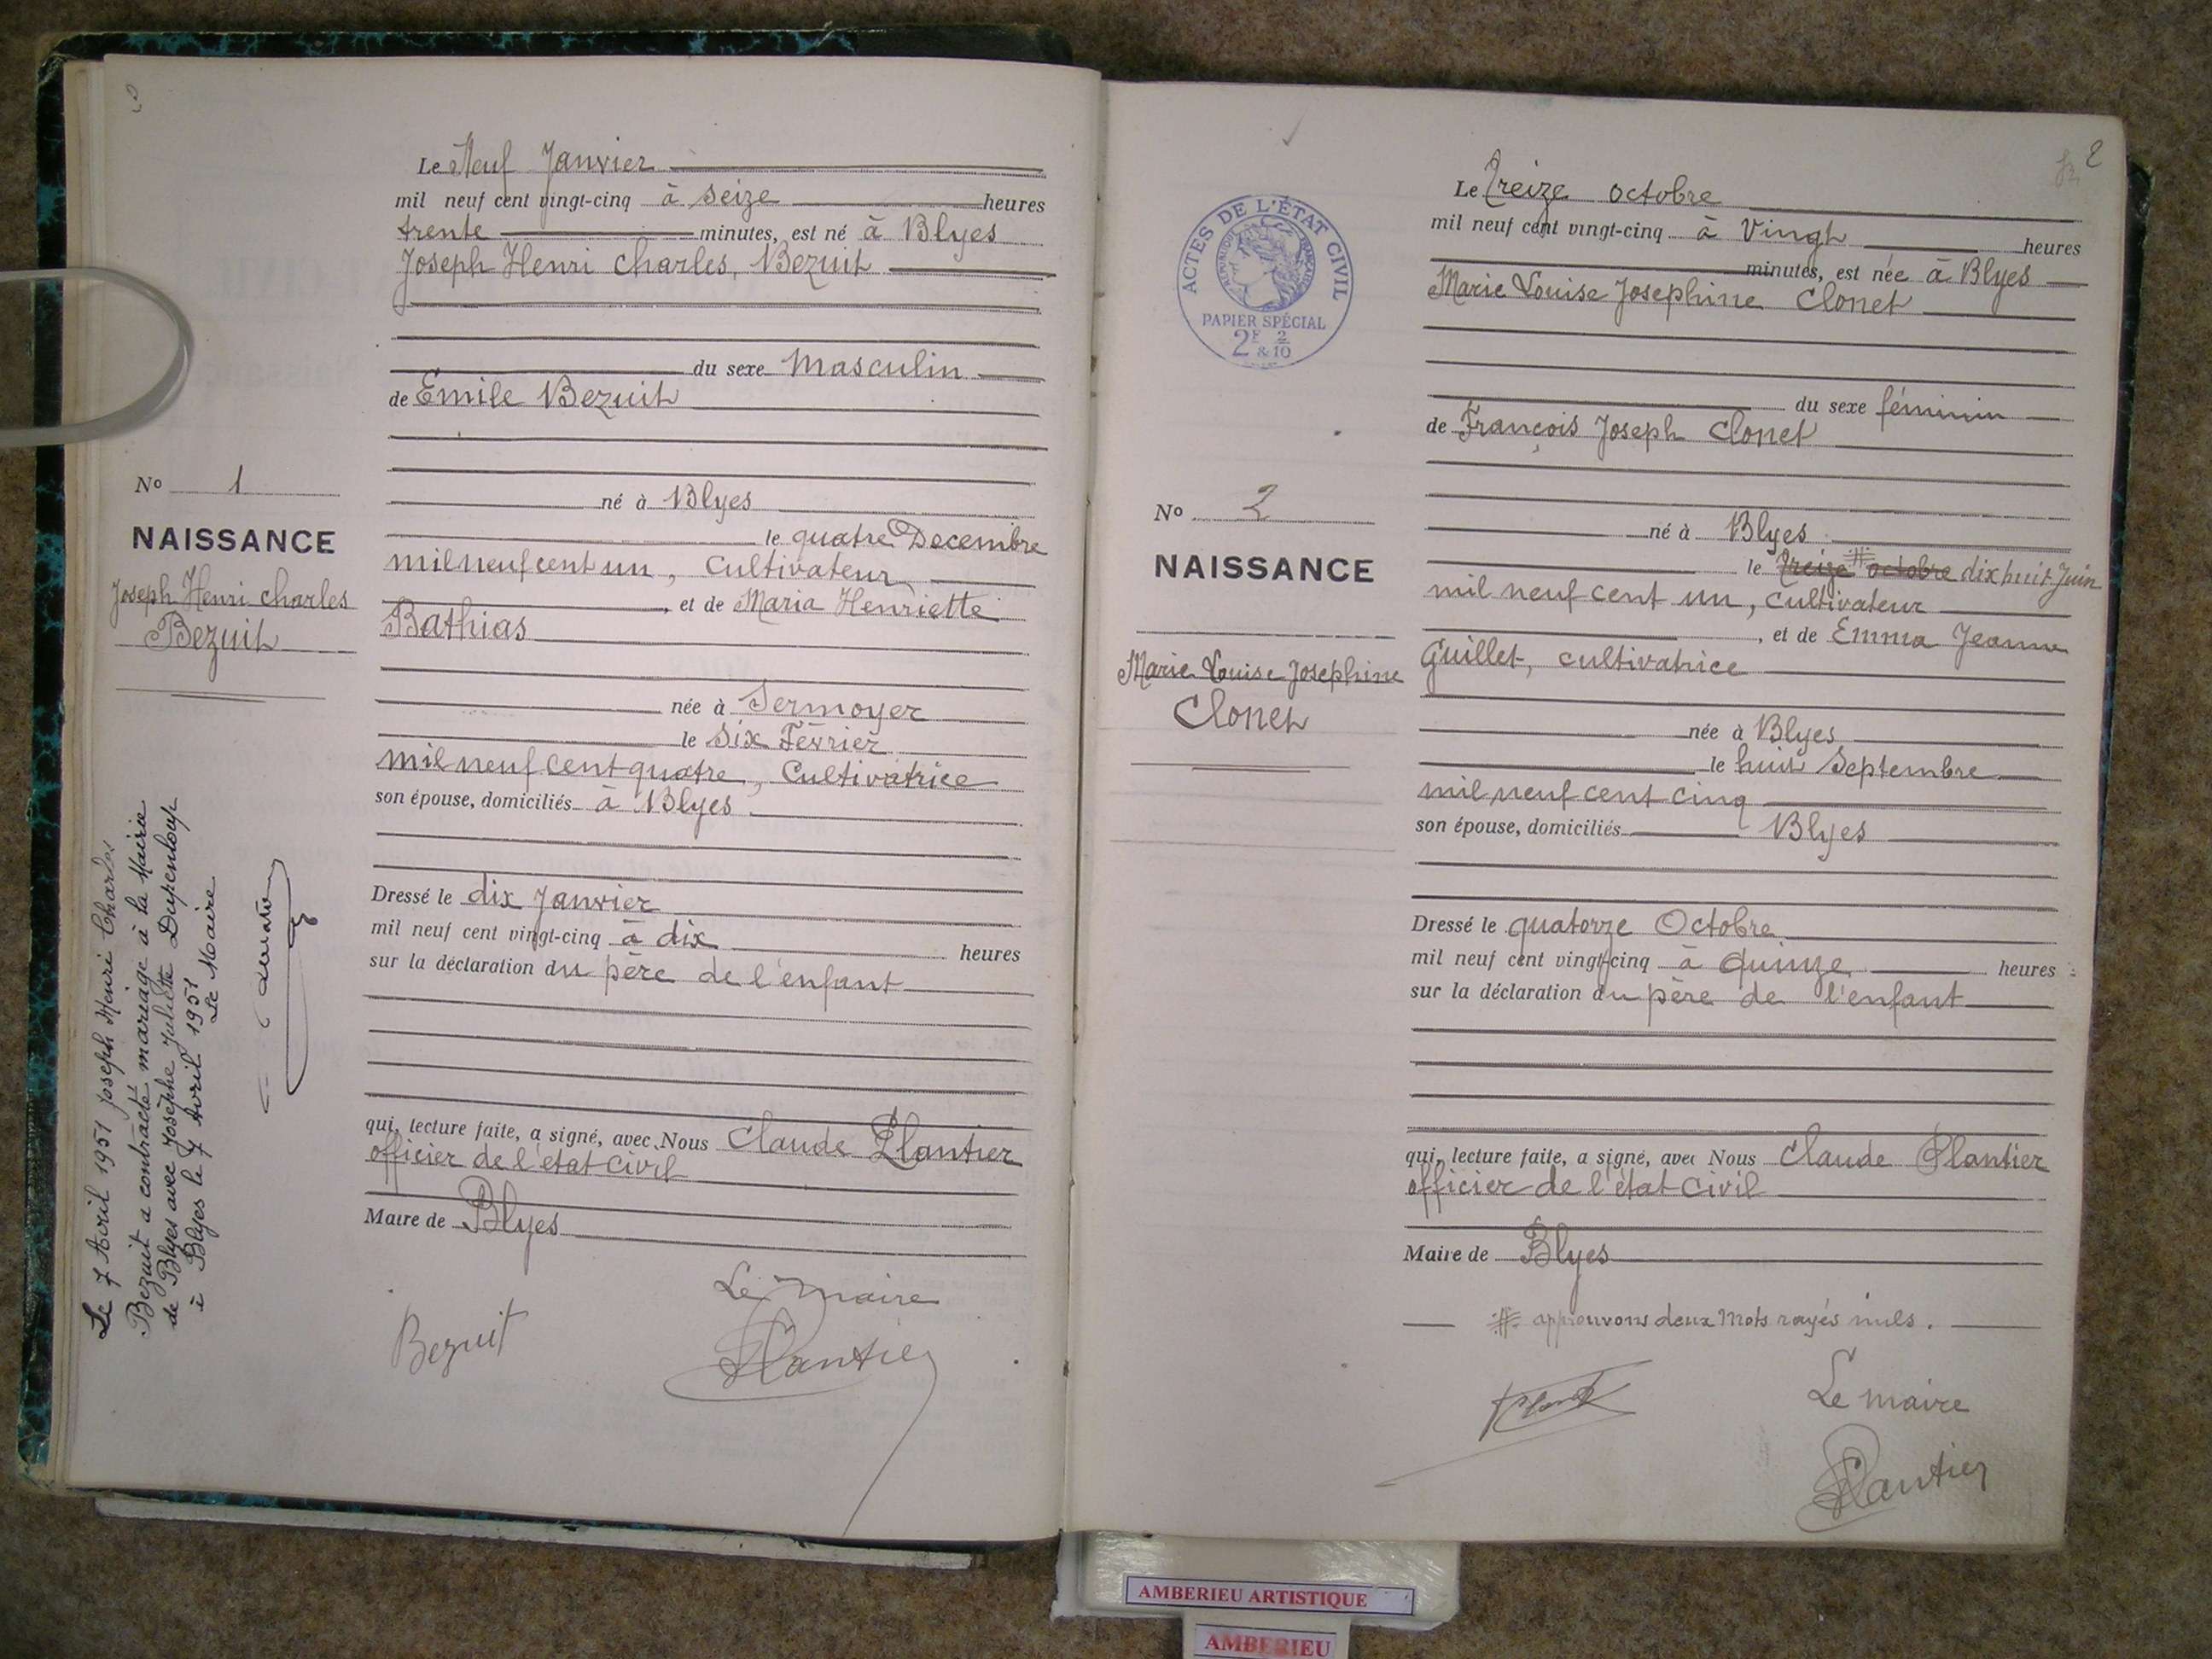 Le Neuf Janvier
mil neuf cent vingt-cinq à seize heures
trente minutes, est né à Blyes
Joseph Henri Charles, Bezuit
du sexe Masculin
de Emile Bezuit
né à Blyes
le quatre Decembre
mil neuf cent un, Cultivateur
, et de Maria Henriette
Bathias
née à Sermoyer
le six Février
mil neuf cent quatre, Cultivatrice
son épouse, domiciliés à Blyes
Dressé le dix Janvier
mil neuf cent vingt-cinq à dix heures
sur la déclaration du père de l'enfant
qui, lecture faite, a signé, avec Nous Claude Plantier
officier de l'état civil
Maire de Blyes
Le maire
Bezuit
Plantier
No 1
NAISSANCE
Joseph Henri Charles
Bezuit
Le 7 Avril 1951 Joseph Henri Charles
Bezuit a contracté mariage à la Mairie
de Blyes avec Josèphe Juliette Dupenloup
à Blyes le 7 Avril 1951
Le Maire
2
ACTES DE L'ÉTAT CIVIL
RÉPUBLIQUE FRANÇAISE
PAPIER SPÉCIAL
2F 2
& 10
No 2
NAISSANCE
Marie Louise Josephine
Clonet
Le Treize octobre
mil neuf cent vingt-cinq à Vingt heures
minutes, est née à Blyes
Marie Louise Josephine Clonet
du sexe féminin
de François Joseph Clonet
né à Blyes
le Treize # octobre dix huit Juin
mil neuf cent un, cultivateur
, et de Emma Jeanne
Guillet, cultivatrice
née à Blyes
le huit Septembre
mil neuf cent cinq
son épouse, domiciliés Blyes
Dressé le quatorze Octobre
mil neuf cent vingt-cinq à quinze heures
sur la déclaration du père de l'enfant
qui, lecture faite, a signé, avec Nous Claude Plantier
officier de l'état Civil
Maire de Blyes
# approuvons deux Mots rayés nuls.
Le maire
Plantier
AMBERIEU ARTISTIQUE
AMBERIEU